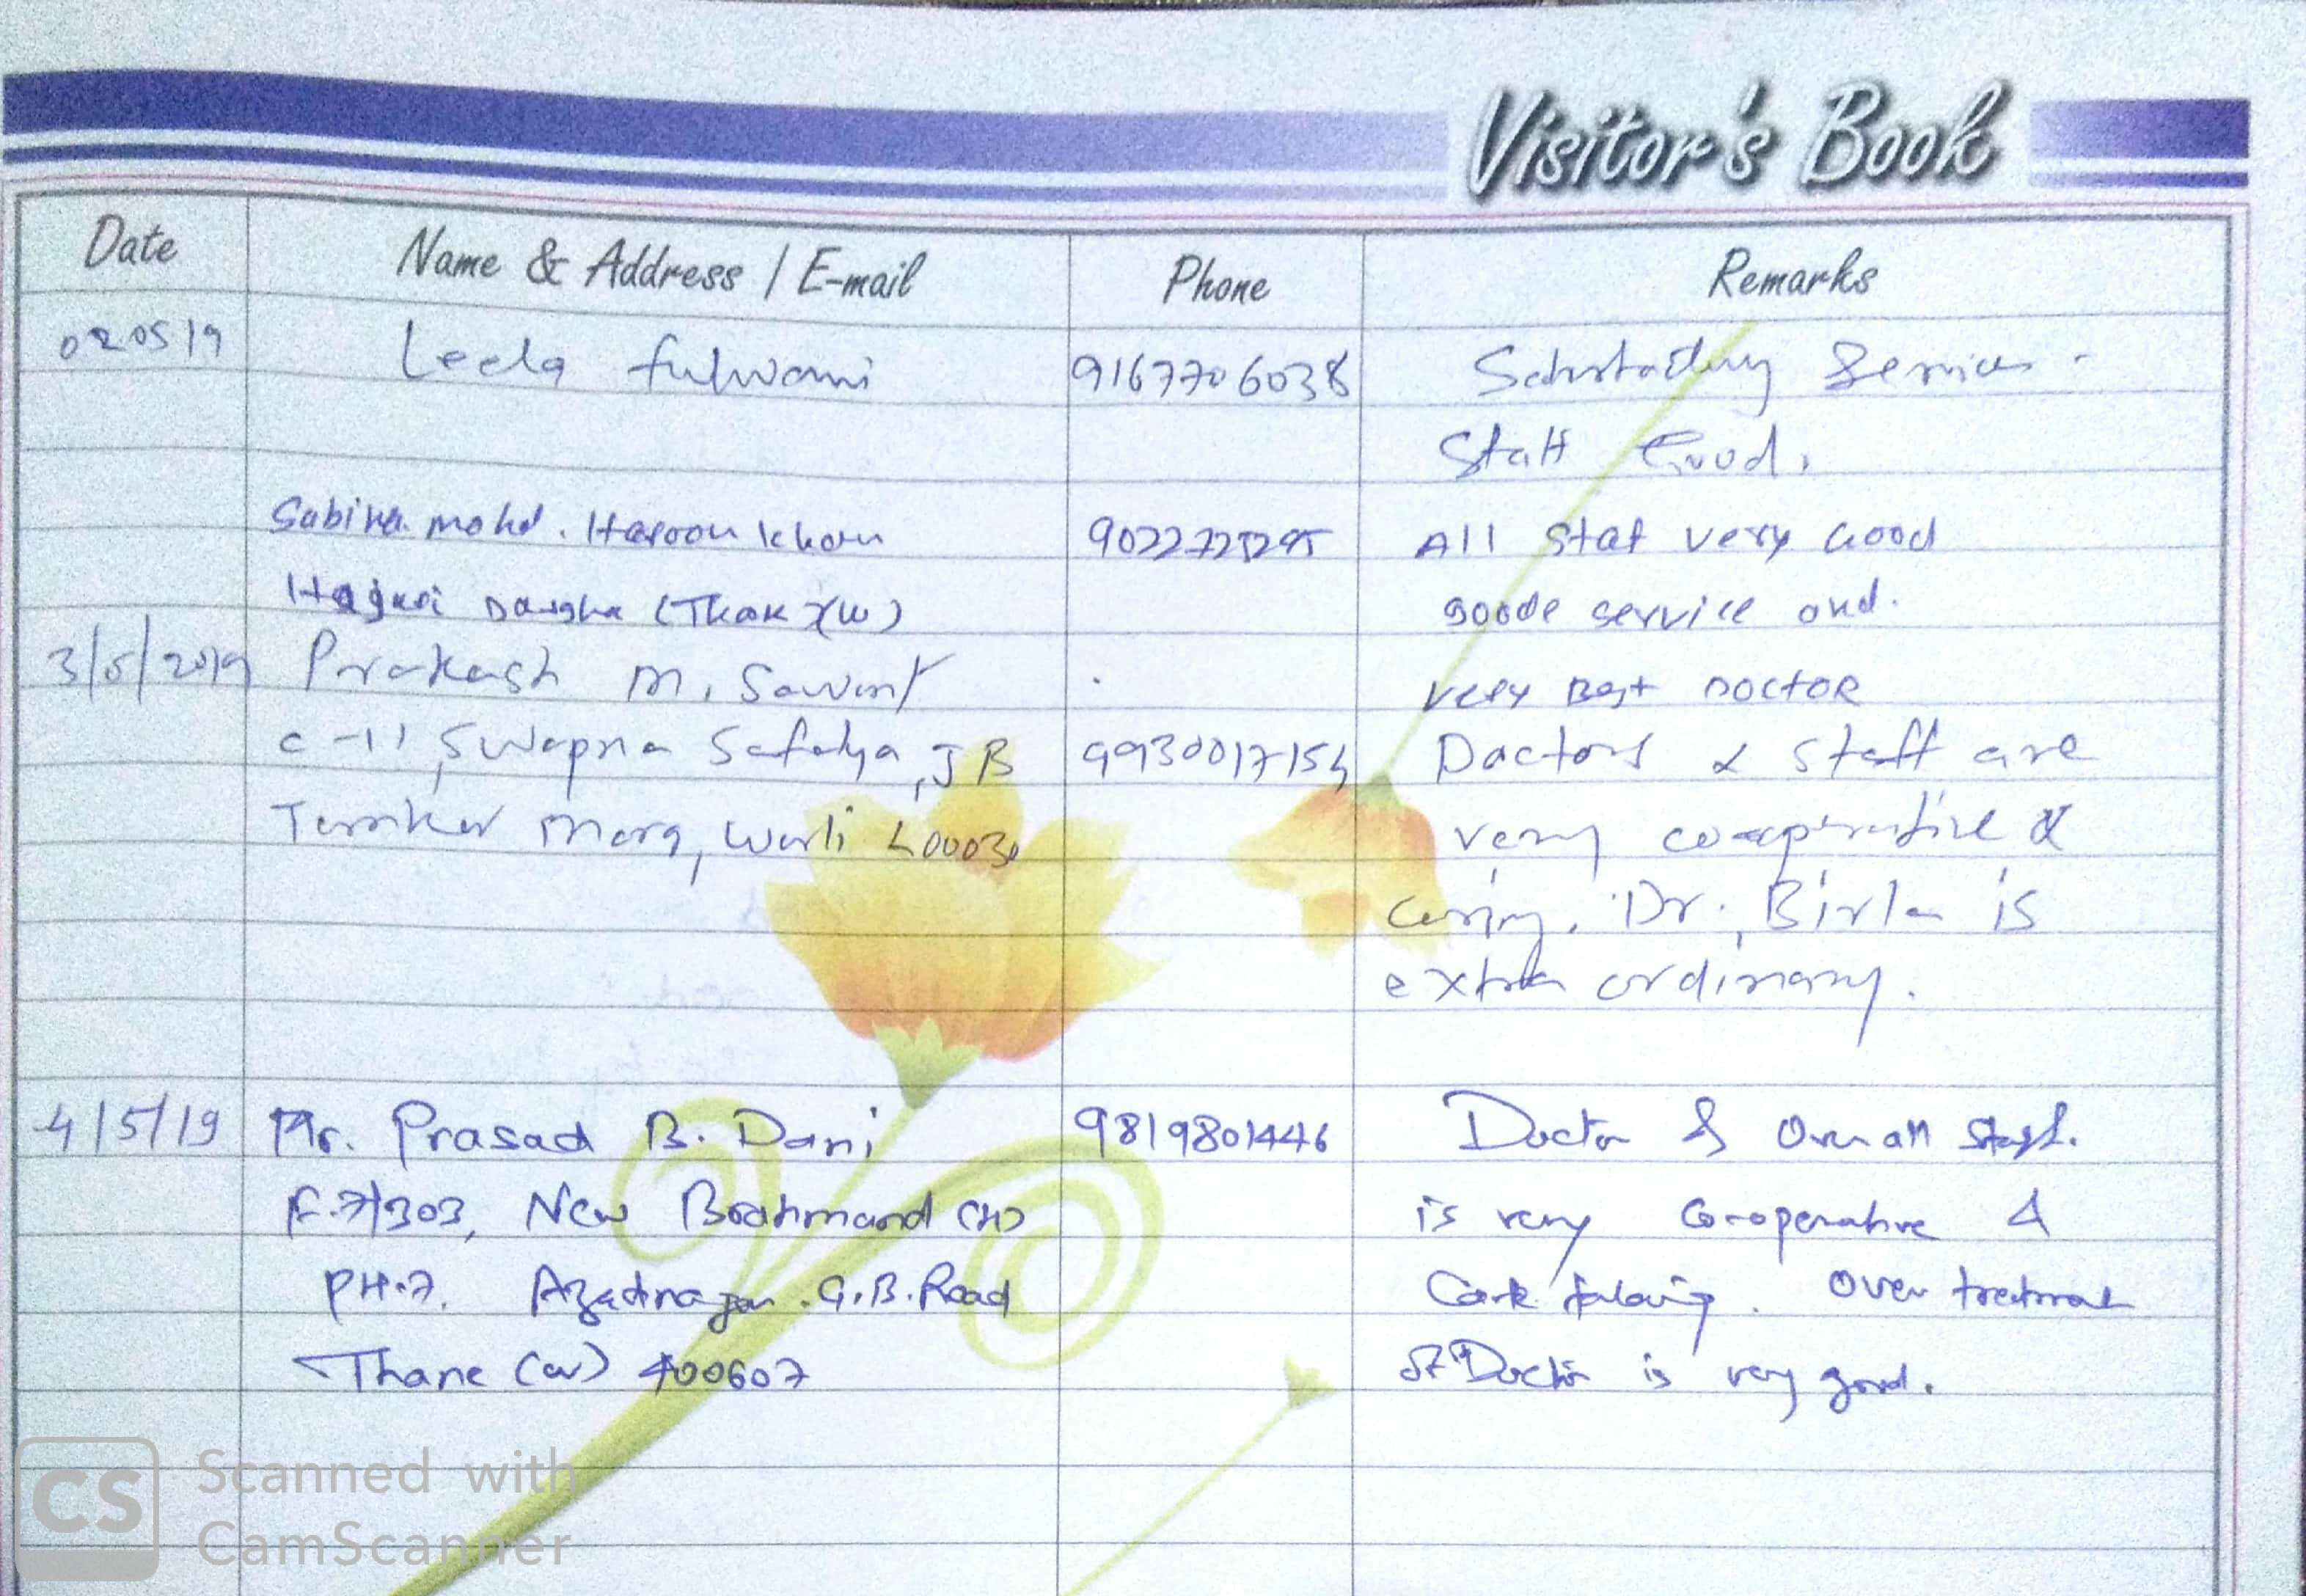 Visitor's Book
Date Name & Address / E-mail Phone Remarks
020519 Leela fulwani 9167706038 Satisfactory Services.
Staff Good.
Sabira mohd. Haroon khan All staf very Good
Hajuri Dargha (W) goode service and.
3/5/2019 Prakash M. Sawant very Best DOCTOR
C-11, Swapna Safalya, JB 9930017154 Doctors & Staff are
Marg, Worli very cooperative &
caring. Dr. Birla is
extra ordinary.
4/5/19 Mr. Prasad B. Dani 9819801446 Doctor & Over all Staff.
F.7/303, New is very Co-operative &
PH.7. Azadnagar. G.B. Road Care taking. Over treatment
Thane (W) 400607 of Doctor is very good.
CS Scanned with
CamScanner